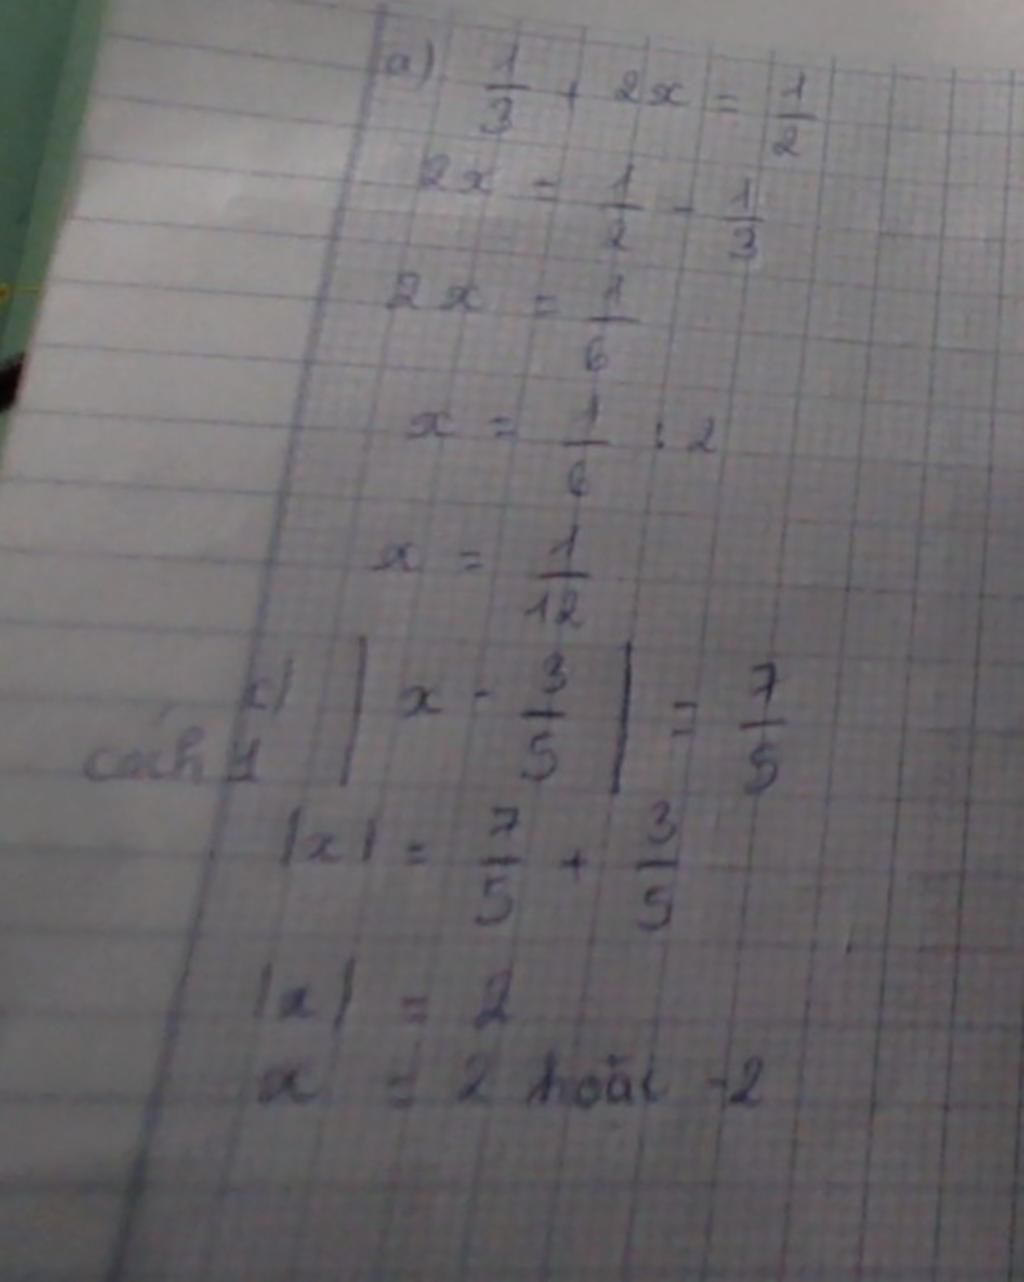 a) 1/3 + 2x = 1/2
2x = 1/2 - 1/3
2x = 1/6
x = 1/6 : 2
x = 1/12
c) | x - 3/5 | = 7/5
cách 1
|x| = 7/5 + 3/5
|x| = 2
x = 2 hoặc -2